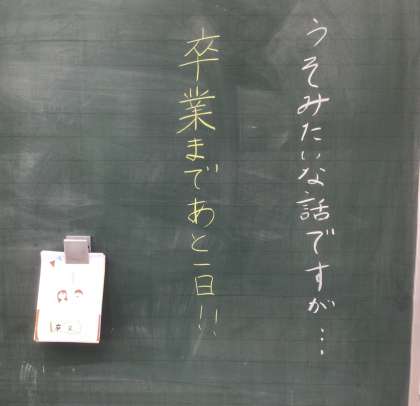 うそみたいな話ですが…
卒業まであと一日!!